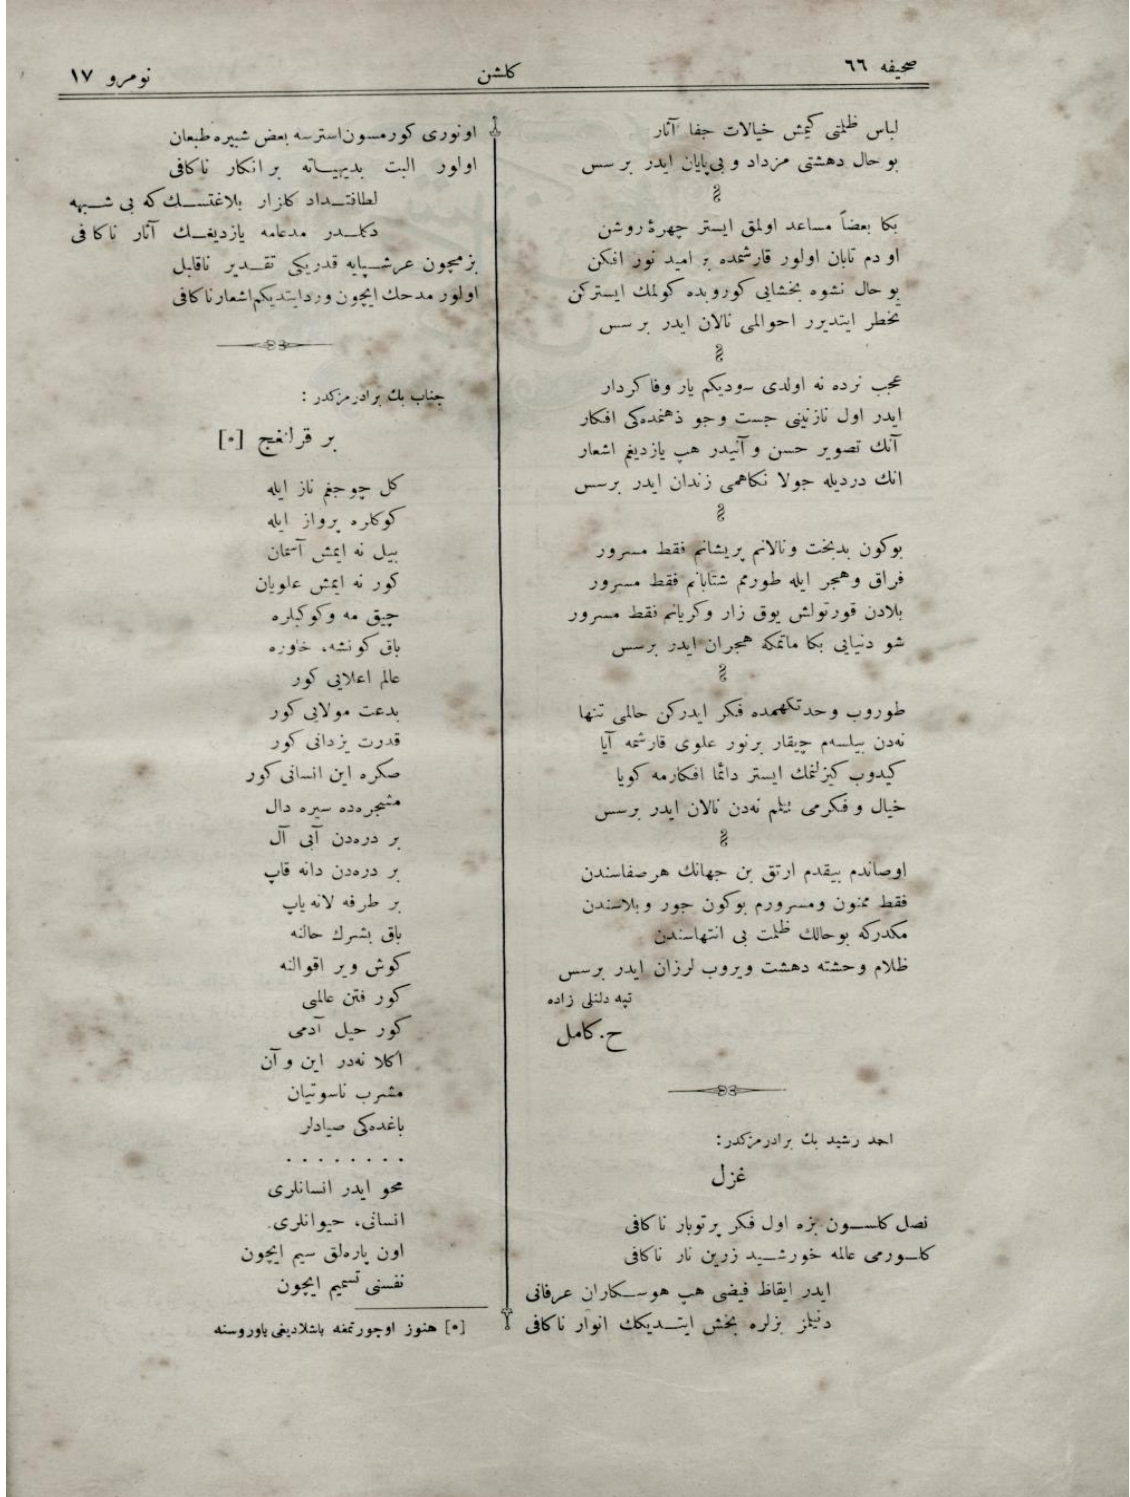 صحیفه ٦٦
كلشن
نومرو ١٧
لباس ظلمتی كیمش خیالات جفا آثار
بو حال دهشتی مزداد و بی‌پایان ایدر بر سس
بكا بعضاً مساعد اولمق ایستر چهرهٔ روشن
او دم تابان اولور قارشمده بر امید نور افكن
بو حال نشوه بخشایی كوروبده كولمك ایستركن
تخطر ایتدیرر احوالمی نالان ایدر بر سس
عجب نرده نه اولدی سودیكم یار وفا كردار
ایدر اول نازنینی جست و جو ذهنمده‌كی افكار
آنك تصویر حسن و آنیدر هپ یازدیغم اشعار
انك دردیله جولا نكاهمی زندان ایدر برسس
بوكون بدبخت ونالانم پریشانم فقط مسرور
فراق وهجر ایله طورمم شتابانم فقط مسرور
بلادن قورتولش یوق زار وكریانم فقط مسرور
شو دنیایی بكا ماتمكه هجران ایدر برسس
طوروب وحدتكهمده فكر ایدركن حالمی تنها
نه‌دن بیلسه‌م چیقار برنور علوی قارشمه آیا
كیدوب كیزلنمك ایستر دائما افكارمه كویا
خیال و فكرمی بیلمم نه‌دن نالان ایدر برسس
اوصاندم بیقدم ارتق بن جهانك هرصفاسندن
فقط ممنون ومسرورم بوكون جور وبلاسندن
مكدركه بوحالك ظلمت بی انتهاسندن
ظلام وحشته دهشت ویروب لرزان ایدر برسس
تپه دلنلی زاده
ح.كامل
احمد رشید بك برادرمزكدر:
غزل
نصل كلســون بزه اول فكر پرتوبار ناكافی
كلــورمی عالمه خورشــید زرین نار ناكافی
ایدر ایقاظ فیضی هپ هوسـكاران عرفانی
دنیلمز بزلره بخش ایتــدیكك انوار ناكافی
اونوری كورمسون‌استرسه بعض شبپره‌طبعان
اولور البت بدیهیــاته بر انكار ناكافی
لطافتــداد كلزار بلاغتســك كه بی شــبهه
دكلــدر مدعامه یازدیغــك آثار ناكافی
بزمچون عرشــپایه قدریكی تقــدیر ناقابل
اولور مدحك ایچون وردایتدیكم‌اشعارناكافی
جناب بك برادرمزكدر :
بر قرلانغج [*]
كل چوجغم ناز ایله
كوكلره پرواز ایله
بیل نه ایمش آسمان
كور نه ایمش علویان
چیق مه وكوكبلره
باق كونشه، خاوره
عالم اعلایی كور
بدعت مولایی كور
قدرت یزدانی كور
صكره این انسانی كور
مشجره‌ده سیره دال
بر دره‌دن آبی آل
بر دره‌دن دانه قاپ
بر طرفه لانه یاپ
باق بشرك حالنه
كوش ویر اقوالنه
كور فتن عالمی
كور حیل آدمی
اكلا نه‌در این و آن
مشرب ناسوتیان
باغده‌كی صیادلر
. . . . . . . .
محو ایدر انسانلری
انسانی، حیوانلری.
اون پاره‌لق سیم ایچون
نفسنی تسمیم ایچون
[*] هنوز اوچورتمغه باشلادیغی یاوروسنه